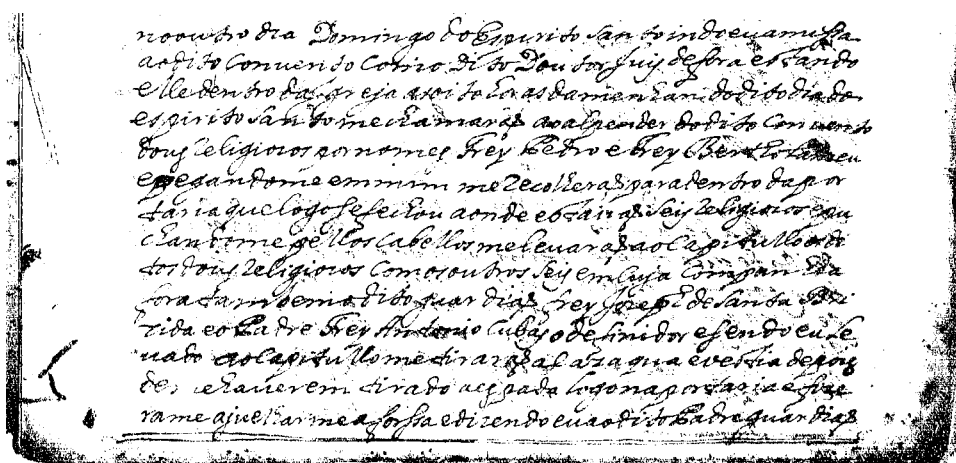 no outro dia Domingo do Espirito santo indo eu a missa
ao dito Convento Como dito Doutor Juiz de fora estando
elle dentro da igreja as oito horas da menhan do dito dia do
espirito santo me chamarão ao alpender do dito Convento
dous Religiosos por nomes Frey Pedro e Frey Bertholameu
e pegandome em mim me Recolherão para dentro da por
taria que logo se fechou aonde estavão seis Religiosos e pu
chandome pellos Cabellos me levarão ao Capitullo os di
tos dous Religiosos Com os outros seis em Cuja Companhia
fora tambem o dito guardião frey Joseph de santa Bri
zida e o Padre Frey Antonio definidor e sendo eu le
vado ao Capitullo me tirarão a Cazaqua e vestia depois
de me haverem tirado a espada logo na portaria e fize
rame ajuelhar me a forssa e dizendo eu ao dito Padre guardião